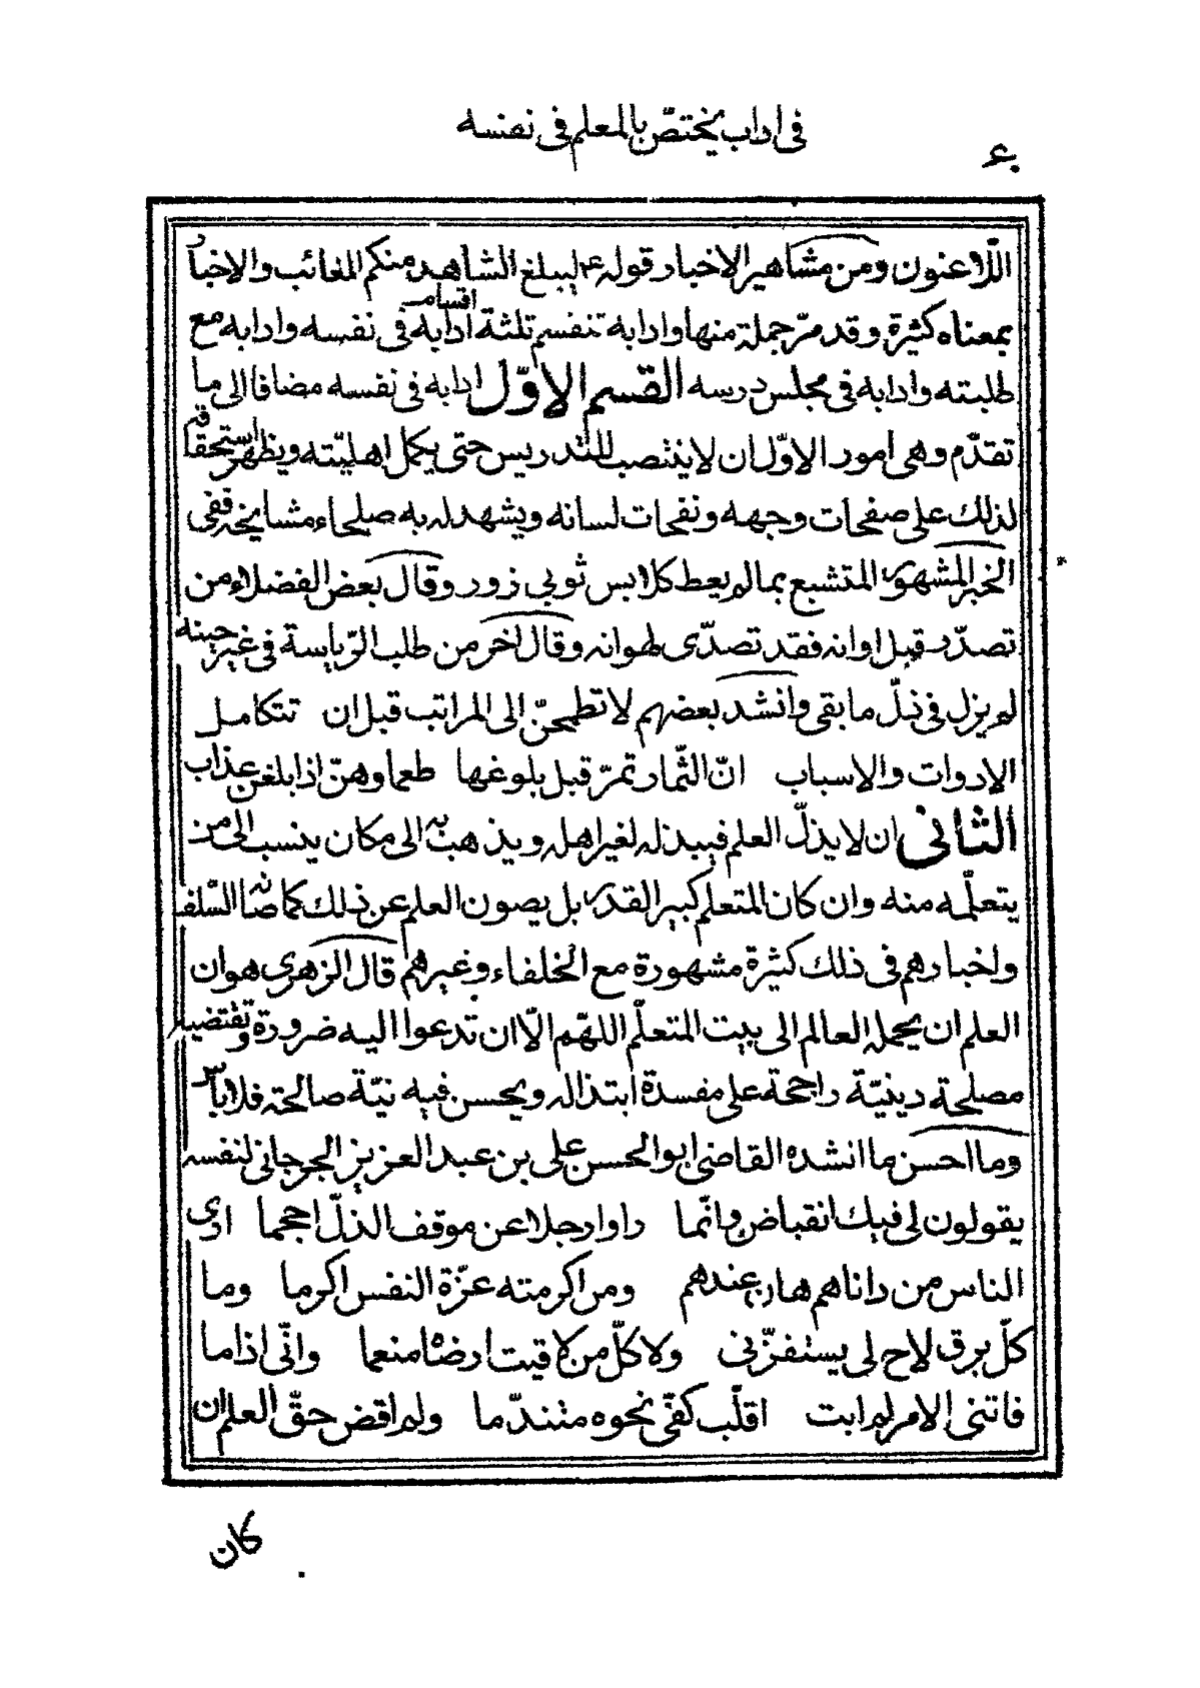 فى اداب يختصّ بالمعلم فى نفسه
۶۰
اللّاعنون ومن مشاهير الاخبار قوله ع ليبلغ الشاهد منكم الغائب والاخبار
بمعناه كثيرة وقد مرّ جملة منها وادابه تنقسم ثلثة اقسام ادابه فى نفسه وادابه مع
طلبته وادابه فى مجلس درسه القسم الاوّل ادابه فى نفسه مضافا الى ما
تقدّم وهى امور الاوّل ان لا ينتصب للتدريس حتى يكمل اهليّته ويظهر استحقاقه
لذلك على صفحات وجهه ونفحات لسانه ويشهد له به صلحاء مشايخه ففى
الخبر المشهور المتشبع بما لم يعط كلابس ثوبى زور وقال بعض الفضلاء من
تصدّر قبل اوانه فقد تصدّى لهوانه وقال اخر من طلب الرّياسة فى غير حينه
لم يزل فى ذلّ ما بقى وانشد بعضهم لا تطمحنّ الى المراتب قبل ان تتكامل
الادوات والاسباب انّ الثّمار تمرّ قبل بلوغها طعما وهنّ اذا بلغن عذاب
الثانى ان لا يذلّ العلم فيبذله لغير اهله ويذهب به الى مكان ينسب الى من
يتعلّمه منه وان كان المتعلم كبير القدر بل يصون العلم عن ذلك كما صانه السّلف
واخبارهم فى ذلك كثيرة مشهورة مع الخلفاء وغيرهم قال الزهرى هوان
العلم ان يحمله العالم الى بيت المتعلّم اللهّم الّا ان تدعوا اليه ضرورة وتقتضيه
مصلحة دينيّة راجحة على مفسدة ابتذاله ويحسن فيه نيّة صالحة فلا باس
وما احسن ما انشده القاضى ابو الحسن على بن عبد العزيز الجرجانى لنفسه
يقولون لى فيك انقباض وانّما راوا رجلا عن موقف الذلّ احجما ارى
الناس من داناهم هان عندهم ومن اكرمته عزّة النفس اكرما وما
كلّ برق لاح لى يستفزّنى ولا كلّ من لاقيت ارضاه منعما وانّى اذا ما
فاتنى الامر لم ابت اقلّب كفّى نحوه متندّما ولم اقض حقّ العلم ان
كان